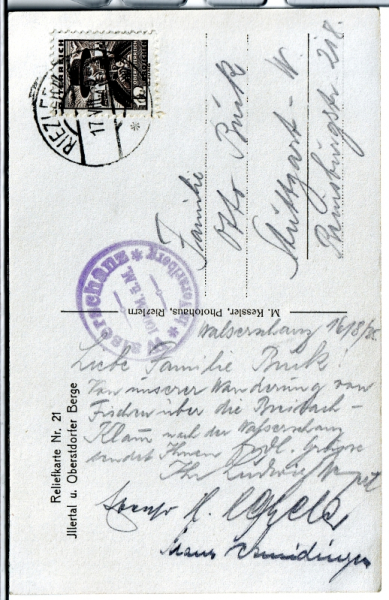 RIEZLERN
17.VIII
Familie
Otto Bück
Stuttgart - W.
Reinsburgstr 218.
Walserschanz
Vorarlberg
1000 M. ü. M.
M. Kessler, Photohaus, Riezlern
Reliefkarte Nr. 21
Jllertal u. Oberstdorfer Berge
Walserschanz 16/8/35
Liebe Familie Bück!
Von unserer Wanderung von
Fischen über die Breitach-
Klam nach der Walserschanz
sendet Ihnen Grüsse
Ihr Ludwig
H.
Hans